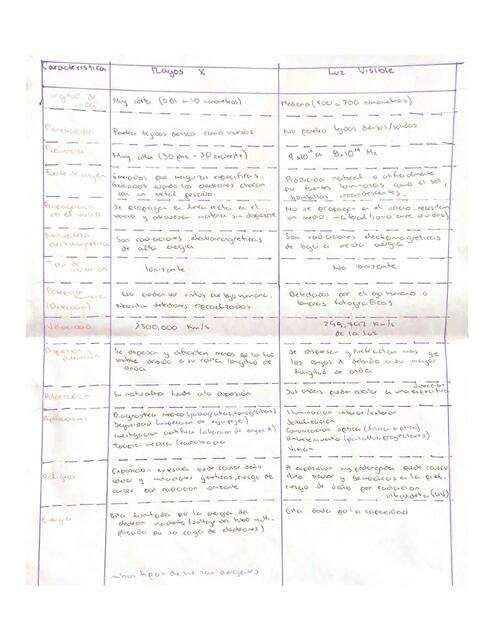 Caracteristica Rayos X Luz Visible
Longitud de onda
Muy corta (0.01 a 10 nanometros)
Mediana (400 a 700 nanometros)
Penetración
Penetra tejidos densos como huesos
No penetra tejidos densos/solidos
Frecuencia
Muy alta (30
4 x 10¹⁴ a 8x10¹⁴ Hz
Fuente de origen
Generados por maquinas especificas,
Generados cuando los electrones chocan
con un metal pesado
Producción natural o artificialmente
por fuentes luminosas como el sol,
bombillos incandescentes.
Propagacion
en el vacio
Se propagan en linea recta en el
vacio y atraviesan materia sin dispersarse
No se propagan en el vacio, necesitan
un medio material (como aire o vidrio)
Naturaleza
electromagnetica
Son radiaciones electromagneticas
de alta energia
Son radiaciones electromagneticas
de baja a media energia
Tipo de
radiación
Ionizante
No ionizante
Percepcion
humana
(Detección)
No pueden ser vistos por ojo humano.
Necesitan detectores especializados
Detectados por el ojo humano o
camaras fotograficas
Velocidad
300,000 Km/s
299,792 Km/s
de la luz
Se dispersan y difractan menos que la luz
visible debido a su corta longitud de
onda
Se dispersan y difractan mas que
los rayos X debido a su mayor
longitud de onda
Polarizacion
Su naturaleza tiende a la dispersión
Sus ondas pueden oscilar a una dirección
especifica
Aplicaciones
Diagnostico medico (radiografias, tomografias)
Seguridad (inspección de equipaje)
Investigacion cientifica (difracción de rayos X)
Terapia medica (radioterapia)
Iluminacion interior/exterior
Señalización
Comunicación optica (fibra optica)
Entretenimiento (pantallas, proyectores)
Vision
Peligros
Exposicion excesiva puede causar daño
celular y mutaciones geneticas, riesgo de
cancer por radiacion ionizante
A exposicion muy prolongada puede causar
daño ocular y quemaduras a la piel,
riesgo de daño por radiacion
ultravioleta (UV)
Energia
Esta limitada por la energia del
electron incidente (voltaje del tubo multi-
plicado por la carga de electrones)
Esta dada por la capacidad
tipos de luz son